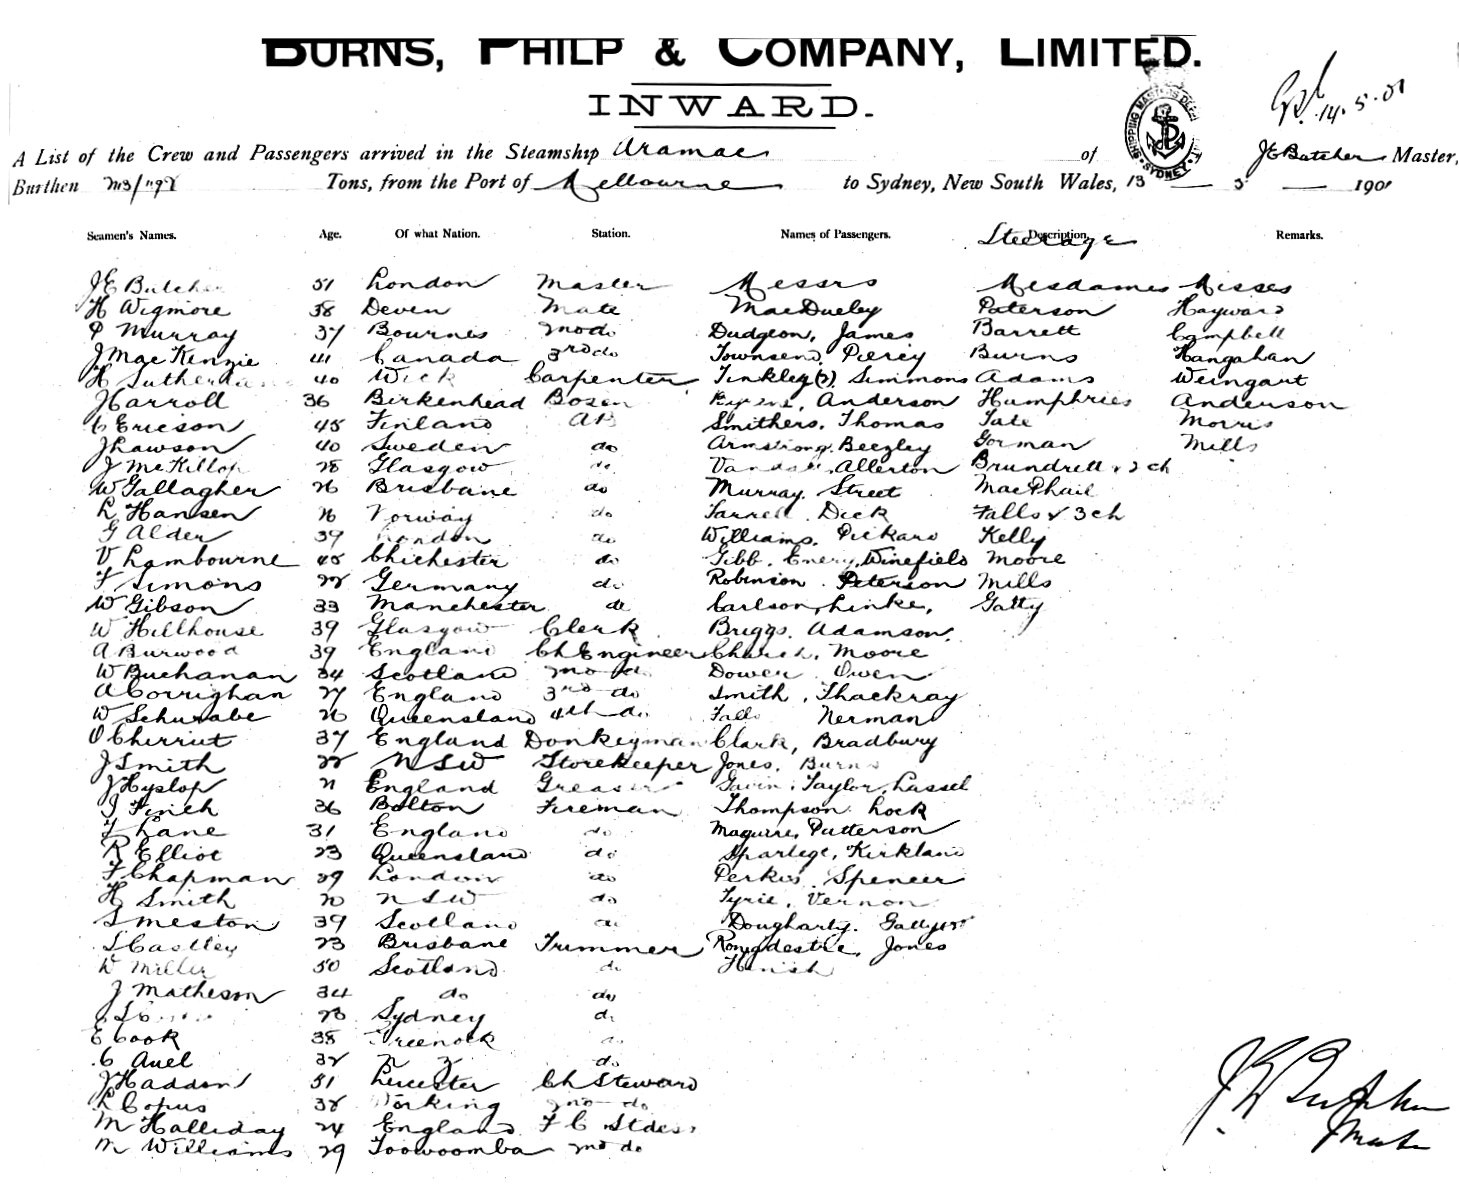 BURNS, PHILP & COMPANY, LIMITED.
INWARD.
14.5.01
SHIPPING MASTERS DEPT SYDNEY
A List of the Crew and Passengers arrived in the Steamship Aramac of J E Butcher Master,
Burthen Tons, from the Port of Melbourne to Sydney, New South Wales, 13 5 1901
Seamen's Names. Age. Of what Nation. Station. Names of Passengers. Description. Steerage Remarks.
J E Butcher 51 London Master Messrs Mesdames Misses
H Wigmore 38 Deven Mate MacDueley Paterson Hayward
P Murray 37 Bournes 2nd do Dudgeon, James Barrett Campbell
J MacKenzie 41 Canada 3rd do Townsend, Piercy Burns Hangahan
H Sutherland 40 Wick Carpenter Tinkley (2), Simmons Adams Weingart
J Carroll 36 Birkenhead Bosen Anderson Humphries Anderson
C Ericson 45 Finland AB Smithers, Thomas Tate Morris
J Lawson 40 Sweden do Armstrong, Beezley Gorman Mills
J McKillop 28 Glasgow do Allerton Brundrett & 2 ch
W Gallagher 26 Brisbane do Murray, Street MacPhail
L Hansen 26 Norway do Farrell, Dick Falls & 3 ch
G Alder 39 London do Williams, Pickard Kelly
V Lambourne 45 Chichester do Gibb, Emery, Winefield Moore
F Simons 22 Germany do Robinson, Peterson Mills
W Gibson 33 Manchester do Carlson, Linke, Gatty
W Hillhouse 39 Glasgow Clerk Briggs, Adamson
A Burwood 39 England Ch Engineer Church, Moore
W Buchanan 34 Scotland 2nd do Dower, Owen
A Corrighan 27 England 3rd do Smith, Thackray
W Schwabe 26 Queensland 4th do Falls Nerman
O Cherriut 37 England Donkeyman Clark, Bradbury
J Smith 22 NSW Storekeeper Jones, Burns
J Hyslop 21 England Greaser Gavin, Taylor, Lassel
J Finch 36 Bolton Fireman Thompson, Lock
T Lane 31 England do Maguire, Patterson
R Elliot 23 Queensland do Sparlege, Kirkland
F Chapman 29 London do Perkis, Spencer
H Smith 20 NSW do Tyrie, Vernon
S Meston 39 Scotland do Dougharty, Gatty
S Castley 23 Brisbane Trimmer Rongdestie, Jones
W Miller 50 Scotland do Hinish
J Matheson 34 do do
23 Sydney do
E Cook 38 Greenock do
C Auel 32 N Z do
J Haddon 51 Leicester Ch Steward
L Copus 32 Working 2nd do
M Halliday 24 England F C Stdess
M Williams 29 Toowoomba 2nd do
J E Butcher
Master